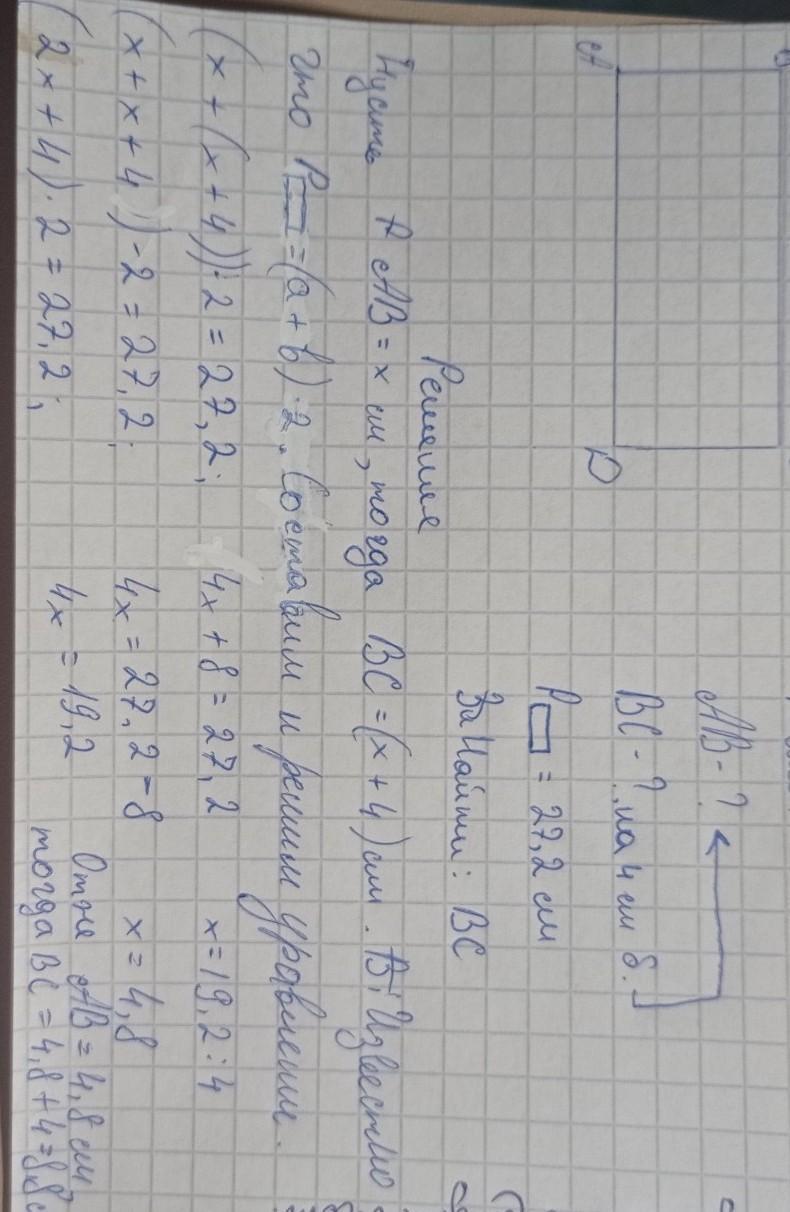 AB - ?
BC - ?, на 4 см б.
P▭ = 27,2 см
Найти: BC
A
D
Решение
Пусть AB = x см, тогда BC = (x + 4) см. Известно
что P▭ = (a + b) · 2. Составим и решим уравнение.
(x + (x + 4)) · 2 = 27,2;
(x + x + 4) · 2 = 27,2;
(2x + 4) · 2 = 27,2;
4x + 8 = 27,2
4x = 27,2 - 8
4x = 19,2
x = 19,2 : 4
x = 4,8
AB = 4,8 см
тогда BC = 4,8 + 4 = 8,8 с